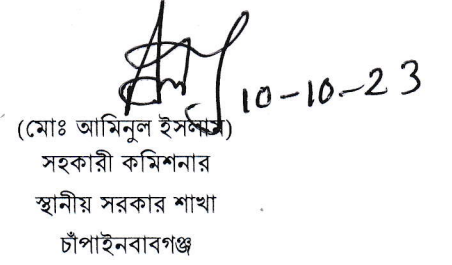 10-10-23
(মোঃ আমিনুল ইসলাম)
সহকারী কমিশনার
স্থানীয় সরকার শাখা
চাঁপাইনবাবগঞ্জ